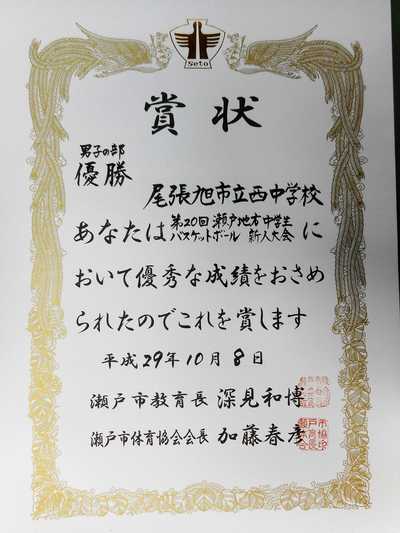 Seto
賞状
男子の部
優勝
尾張旭市立西中学校
あなたは第20回瀬戸地方中学生バスケットボール新人大会に
おいて優秀な成績をおさめ
られたのでこれを賞します
平成29年10月8日
瀬戸市教育長 深見和博
瀬戸市体育協会会長 加藤春彦